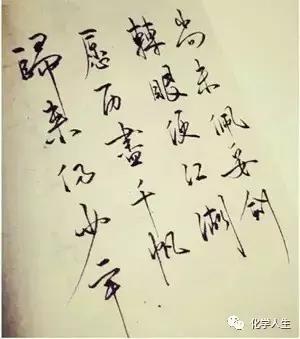 尚未佩妥劍
轉眼便江湖
愿历盡千帆
歸来仍少年
化学人生